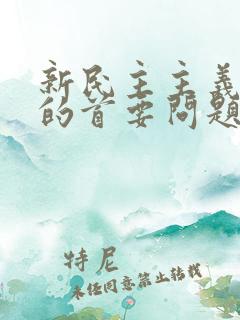 新民主主义
的首要问题
特尼
未经同意禁止转载